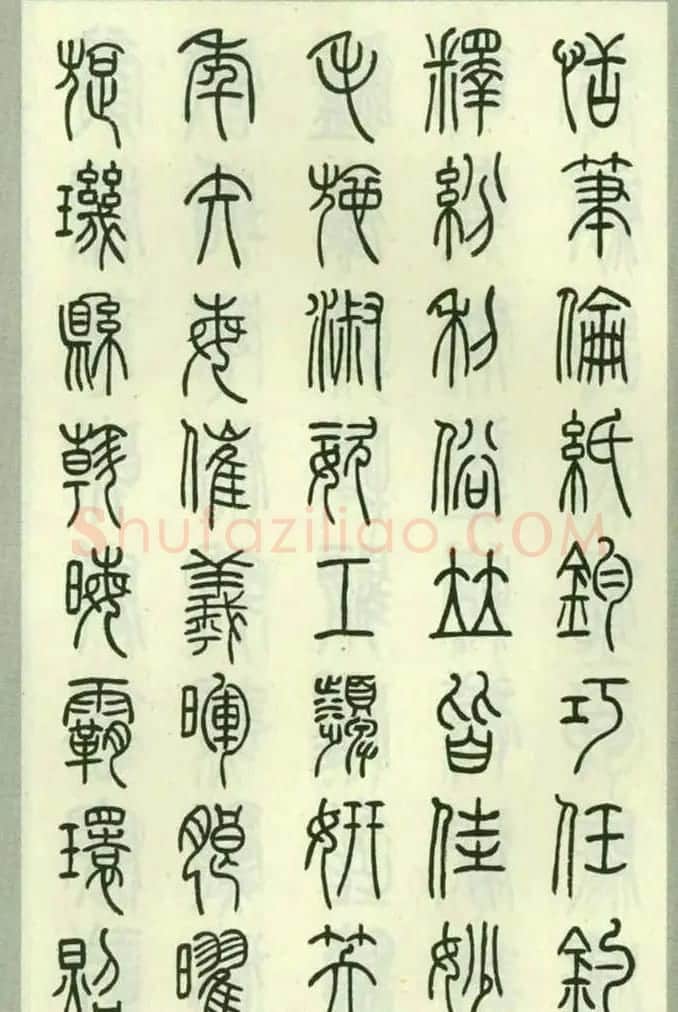 恬筆倫紙鈞巧任釣
釋紛利俗竝皆佳妙
毛施淑姿工顰妍笑
年矢每催羲暉朗曜
旋璣縣斡晦霸環照
Shufaziliao.COM